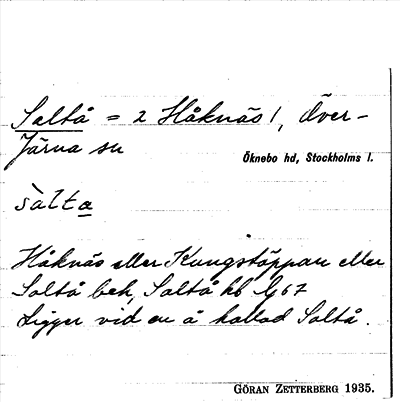 Saltå = 2 Håknäs 1, Över-
Järna sn
Öknebo hd, Stockholms l.
sàlta
Håknäs eller Kungstäppan eller
Saltå beh, Saltå hb G67
Ligger vid en å kallad Saltå.
GÖRAN ZETTERBERG 1935.